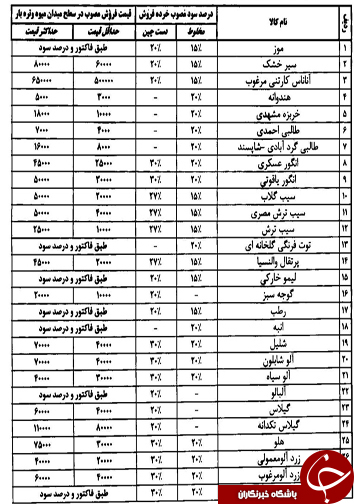 ردیف نام کالا درصد سود مصوب خرده فروش قیمت فروش مصوب در سطح میدان میوه وتره بار
مخلوط دست چین حداقل قیمت حداکثر قیمت
۱ موز ۱۵٪ ۲۰٪ طبق فاکتور و درصد سود
۲ سیر خشک ۱۵٪ ۲۰٪ ۶۰۰۰۰ ۸۰۰۰۰
۳ آناناس کارتنی مرغوب ۱۵٪ ۲۰٪ ۵۰۰۰۰۰ ۶۵۰۰۰۰
۴ هندوانه ۲۰٪ - ۳۰۰۰ ۵۰۰۰
۵ خربزه مشهدی ۲۰٪ - ۱۰۰۰۰ ۱۸۰۰۰
۶ طالبی احمدی ۲۰٪ - ۴۰۰۰ ۷۰۰۰
۷ طالبی گرد آبادی -شاپسند ۲۰٪ - ۸۰۰۰ ۱۶۰۰۰
۸ انگور عسکری ۲۰٪ ۳۰٪ ۲۵۰۰۰ ۴۵۰۰۰
۹ انگور یاقوتی ۲۰٪ ۳۰٪ ۳۰۰۰۰ ۵۰۰۰۰
۱۰ سیب گلاب ۱۵٪ ۲۷٪ ۲۰۰۰۰ ۵۰۰۰۰
۱۱ سیب ترش مصری ۱۵٪ ۲۷٪ ۴۰۰۰۰ ۵۰۰۰۰
۱۲ سیب ترش ۱۵٪ ۲۷٪ ۱۰۰۰۰ ۲۵۰۰۰
۱۳ توت فرنگی گلخانه ای ۲۰٪ - طبق فاکتور و درصد سود
۱۴ پرتقال والنسیا ۱۵٪ ۲۷٪ ۲۰۰۰۰ ۴۵۰۰۰
۱۵ لیمو خارکی ۱۵٪ ۲۰٪ طبق فاکتور و درصد سود
۱۶ گوجه سبز - ۲۰٪ ۱۰۰۰۰ ۲۰۰۰۰
۱۷ رطب ۱۵٪ ۲۰٪ طبق فاکتور و درصد سود
۱۸ انبه ۲۰٪ - طبق فاکتور و درصد سود
۱۹ شلیل ۲۰٪ ۳۰٪ ۴۰۰۰۰ ۷۰۰۰۰
۲۰ آلو شابلون ۲۰٪ ۳۰٪ ۴۰۰۰۰ ۷۰۰۰۰
۲۱ آلو سیاه ۲۰٪ ۳۰٪ ۳۰۰۰۰ ۴۰۰۰۰
۲۲ آلبالو - ۲۰٪ طبق فاکتور و درصد سود
۲۳ گیلاس - ۲۰٪ ۴۰۰۰۰ ۶۰۰۰۰
۲۴ گیلاس تکدانه - ۲۰٪ ۸۰۰۰۰ ۱۱۰۰۰۰
۲۵ هلو ۲۰٪ ۳۰٪ ۳۰۰۰۰ ۷۵۰۰۰
زرد آلومعمولی ۲۰٪ ۳۰٪ ۲۰۰۰۰ ۴۰۰۰۰
زرد آلومرغوب ۲۰٪ ۳۰٪ ۴۰۰۰۰ ۶۰۰۰۰
۲۰٪ ۳۰٪ طبق فاکتور و درصد سود
باشگاه خبرنگاران